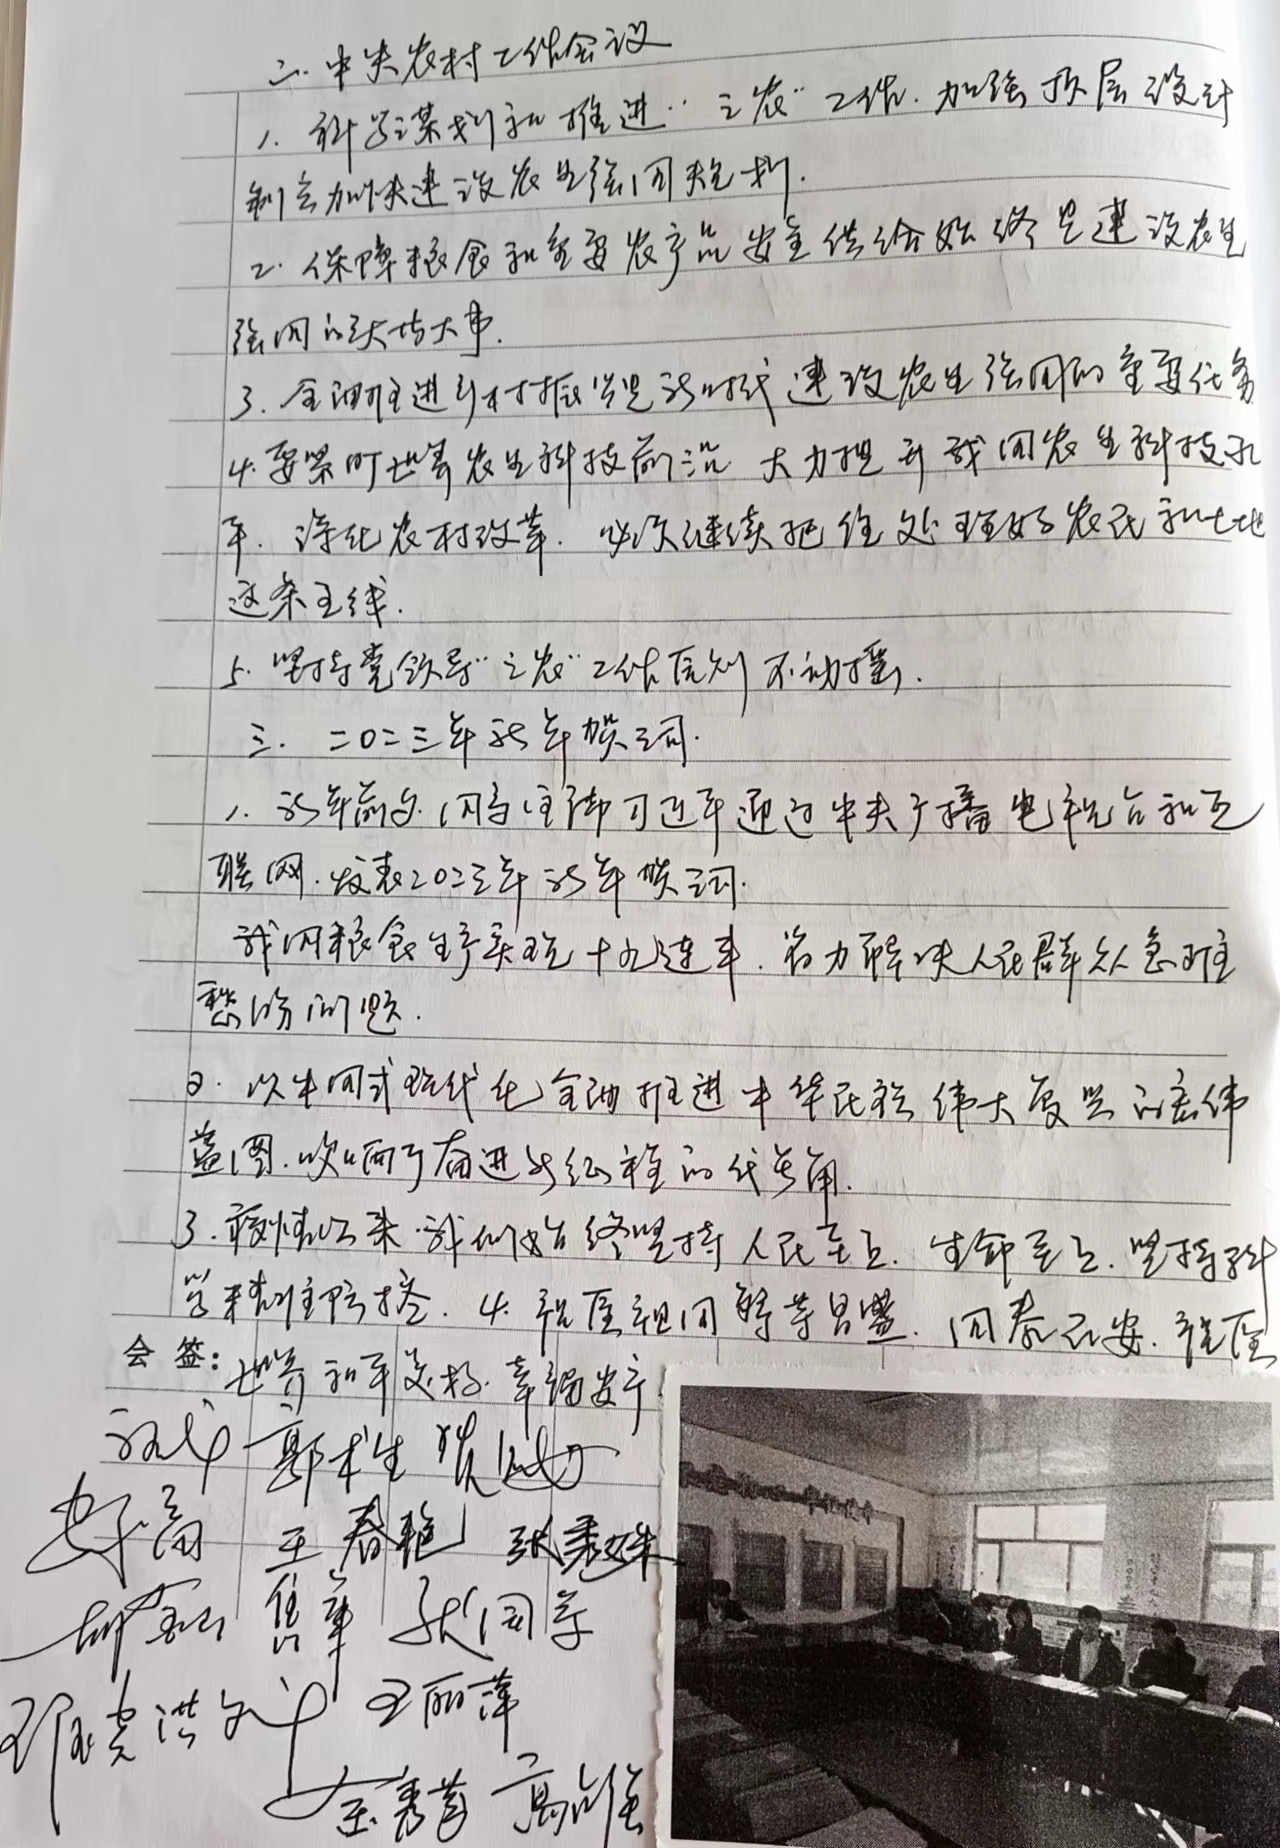 二.中央农村工作会议
1.科学谋划和推进"三农"工作.加强顶层设计
制定加快建设农业强国规划.
2.保障粮食和重要农产品安全供给始终是建设农业
强国的头等大事.
3.全面推进乡村振兴是新时代建设农业强国的重要任务
4.要紧盯世界农业科技前沿 大力提升我国农业科技水
平.深化农村改革.必须继续把住处理好农民和土地
这条主线.
5.坚持党领导"三农"工作原则不动摇.
三.二〇二三年新年贺词.
1.新年前夕.国家主席习近平通过中央广播电视台和互
联网.发表2〇二三年新年贺词.
我国粮食生产实现十九连丰.着力解决人民群众急难
愁盼问题.
2.以中国式现代化全面推进中华民族伟大复兴的宏伟
蓝图.吹响了奋进新征程的代号角.
3.疫情以来.我们始终坚持人民至上.生命至上.坚持科
学精准防控.4.祝愿祖国繁荣昌盛.国泰民安.祝愿
会签:世界和平美好.幸福安宁
王春艳 张秀姝
王丽萍